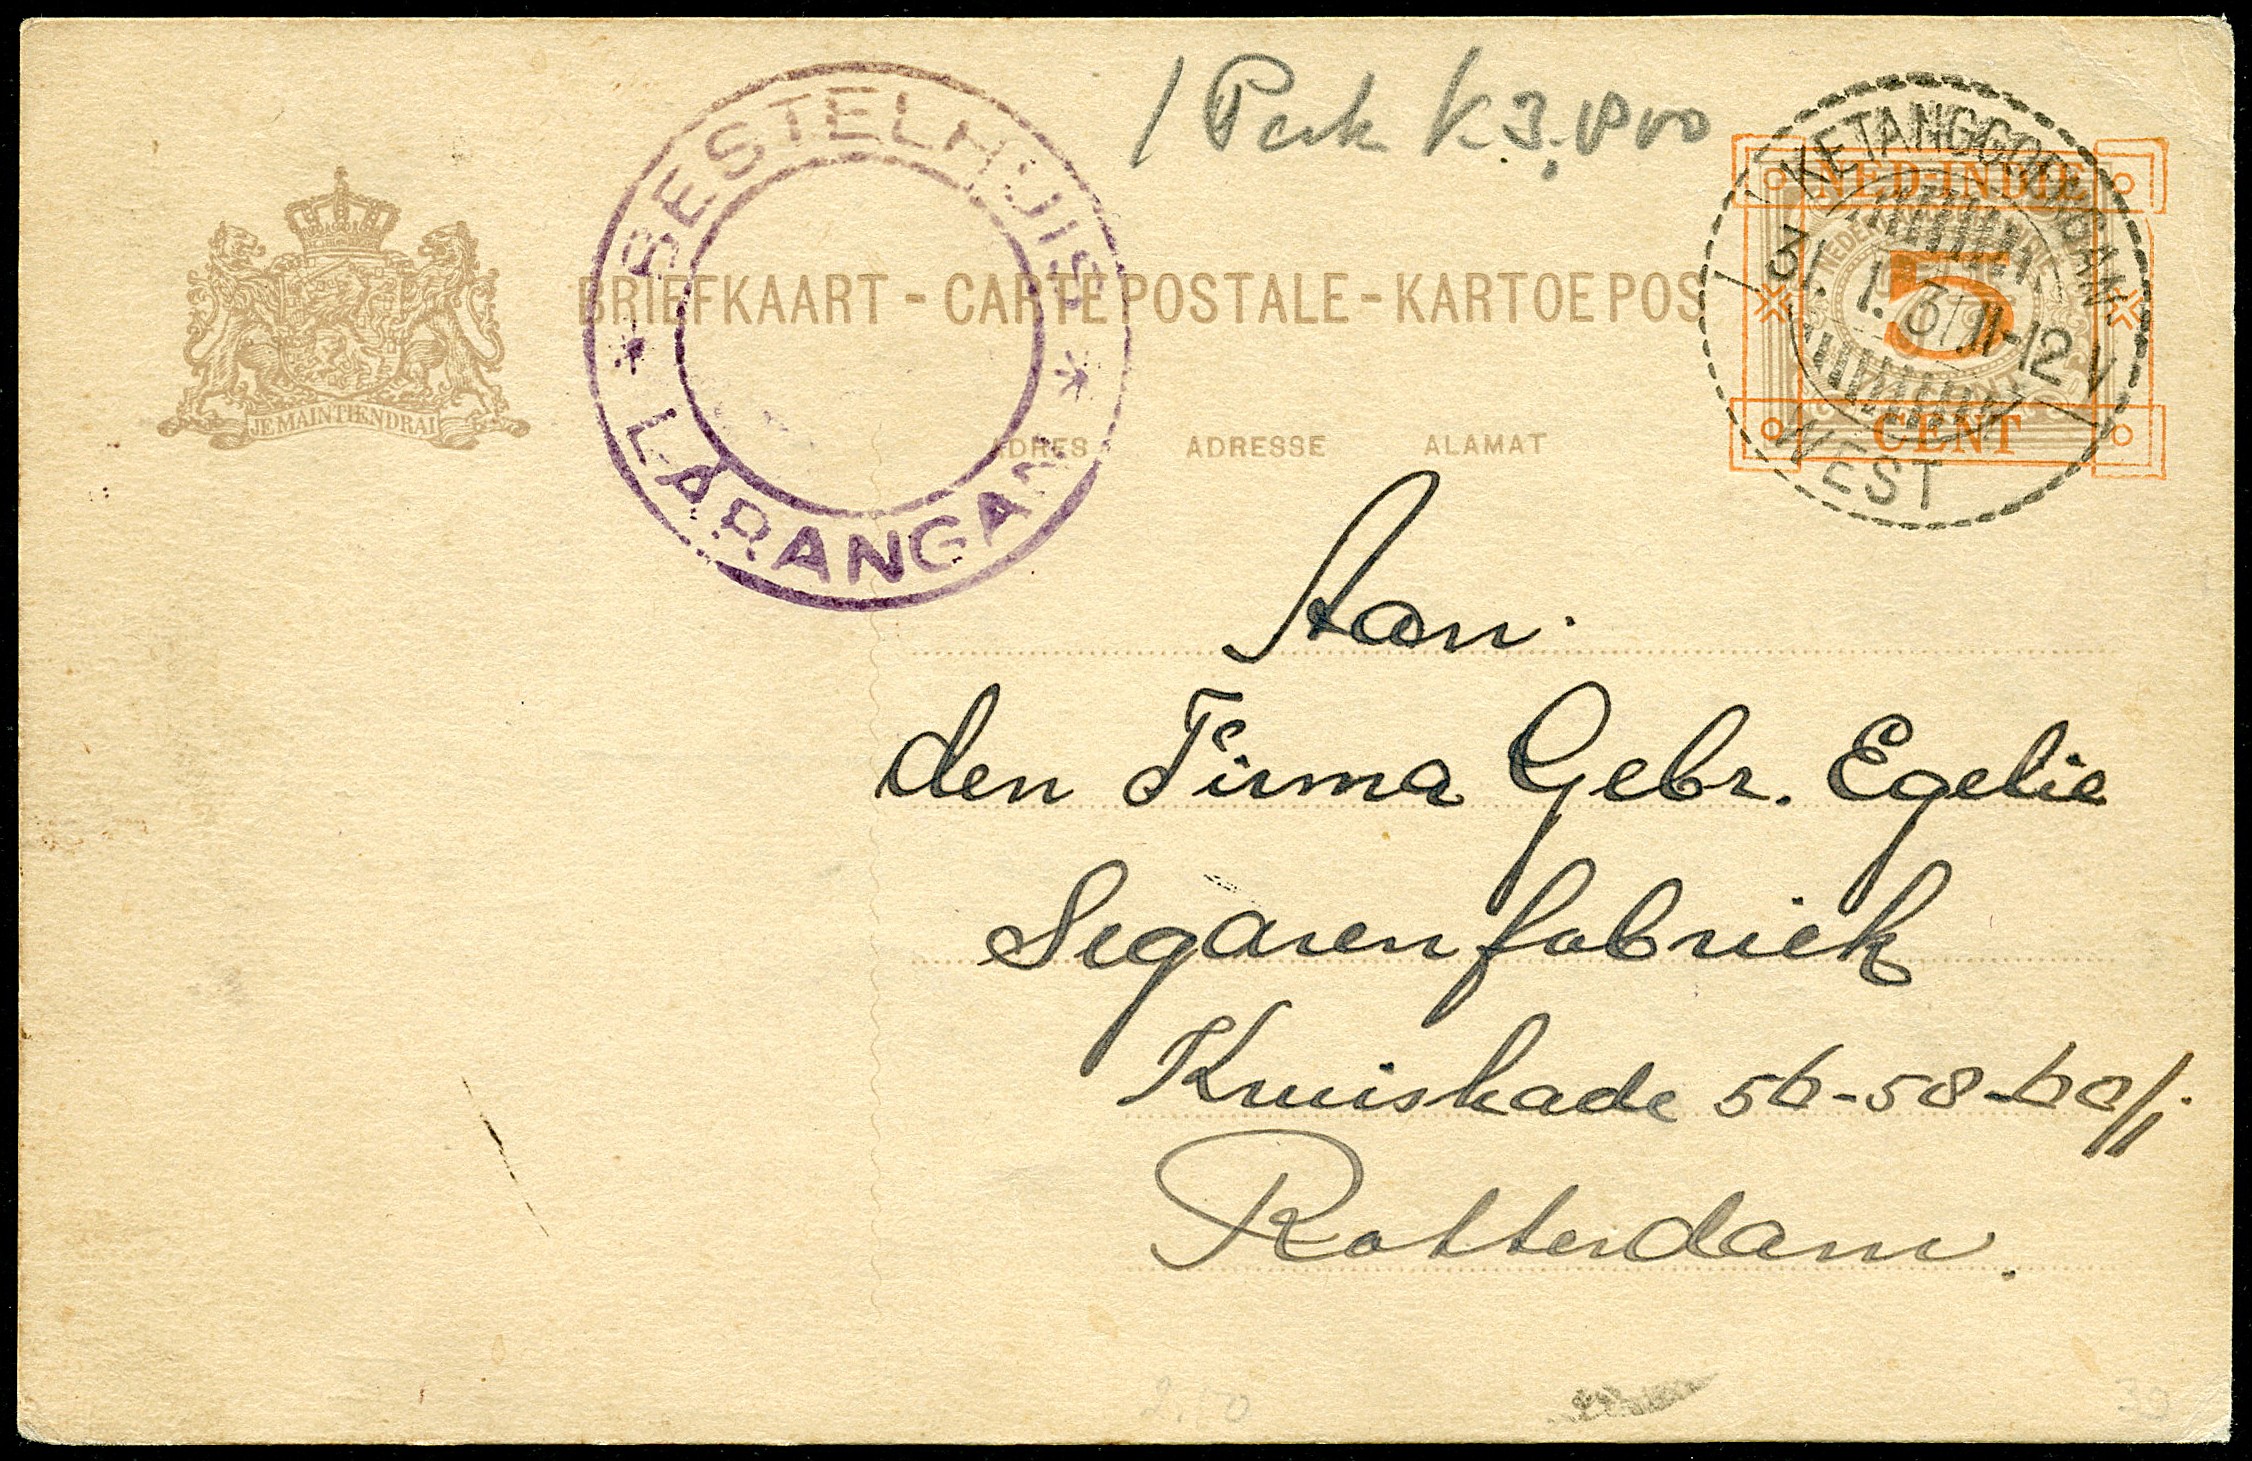 1 Perk K 3,
BESTELHUIS
LARANGAN
KETANGGOENGAN
WEST
31. 1. 3 11-12 V
NED-INDIË
5
CENT
BRIEFKAART - CARTE POSTALE - KARTOE POS
JE MAINTIENDRAI
ADRES ADRESSE ALAMAT
Aan.
den Firma Gebr. Egelie
Segarenfabriek
Kruiskade 56-58-60
Rotterdam.
2.50
30